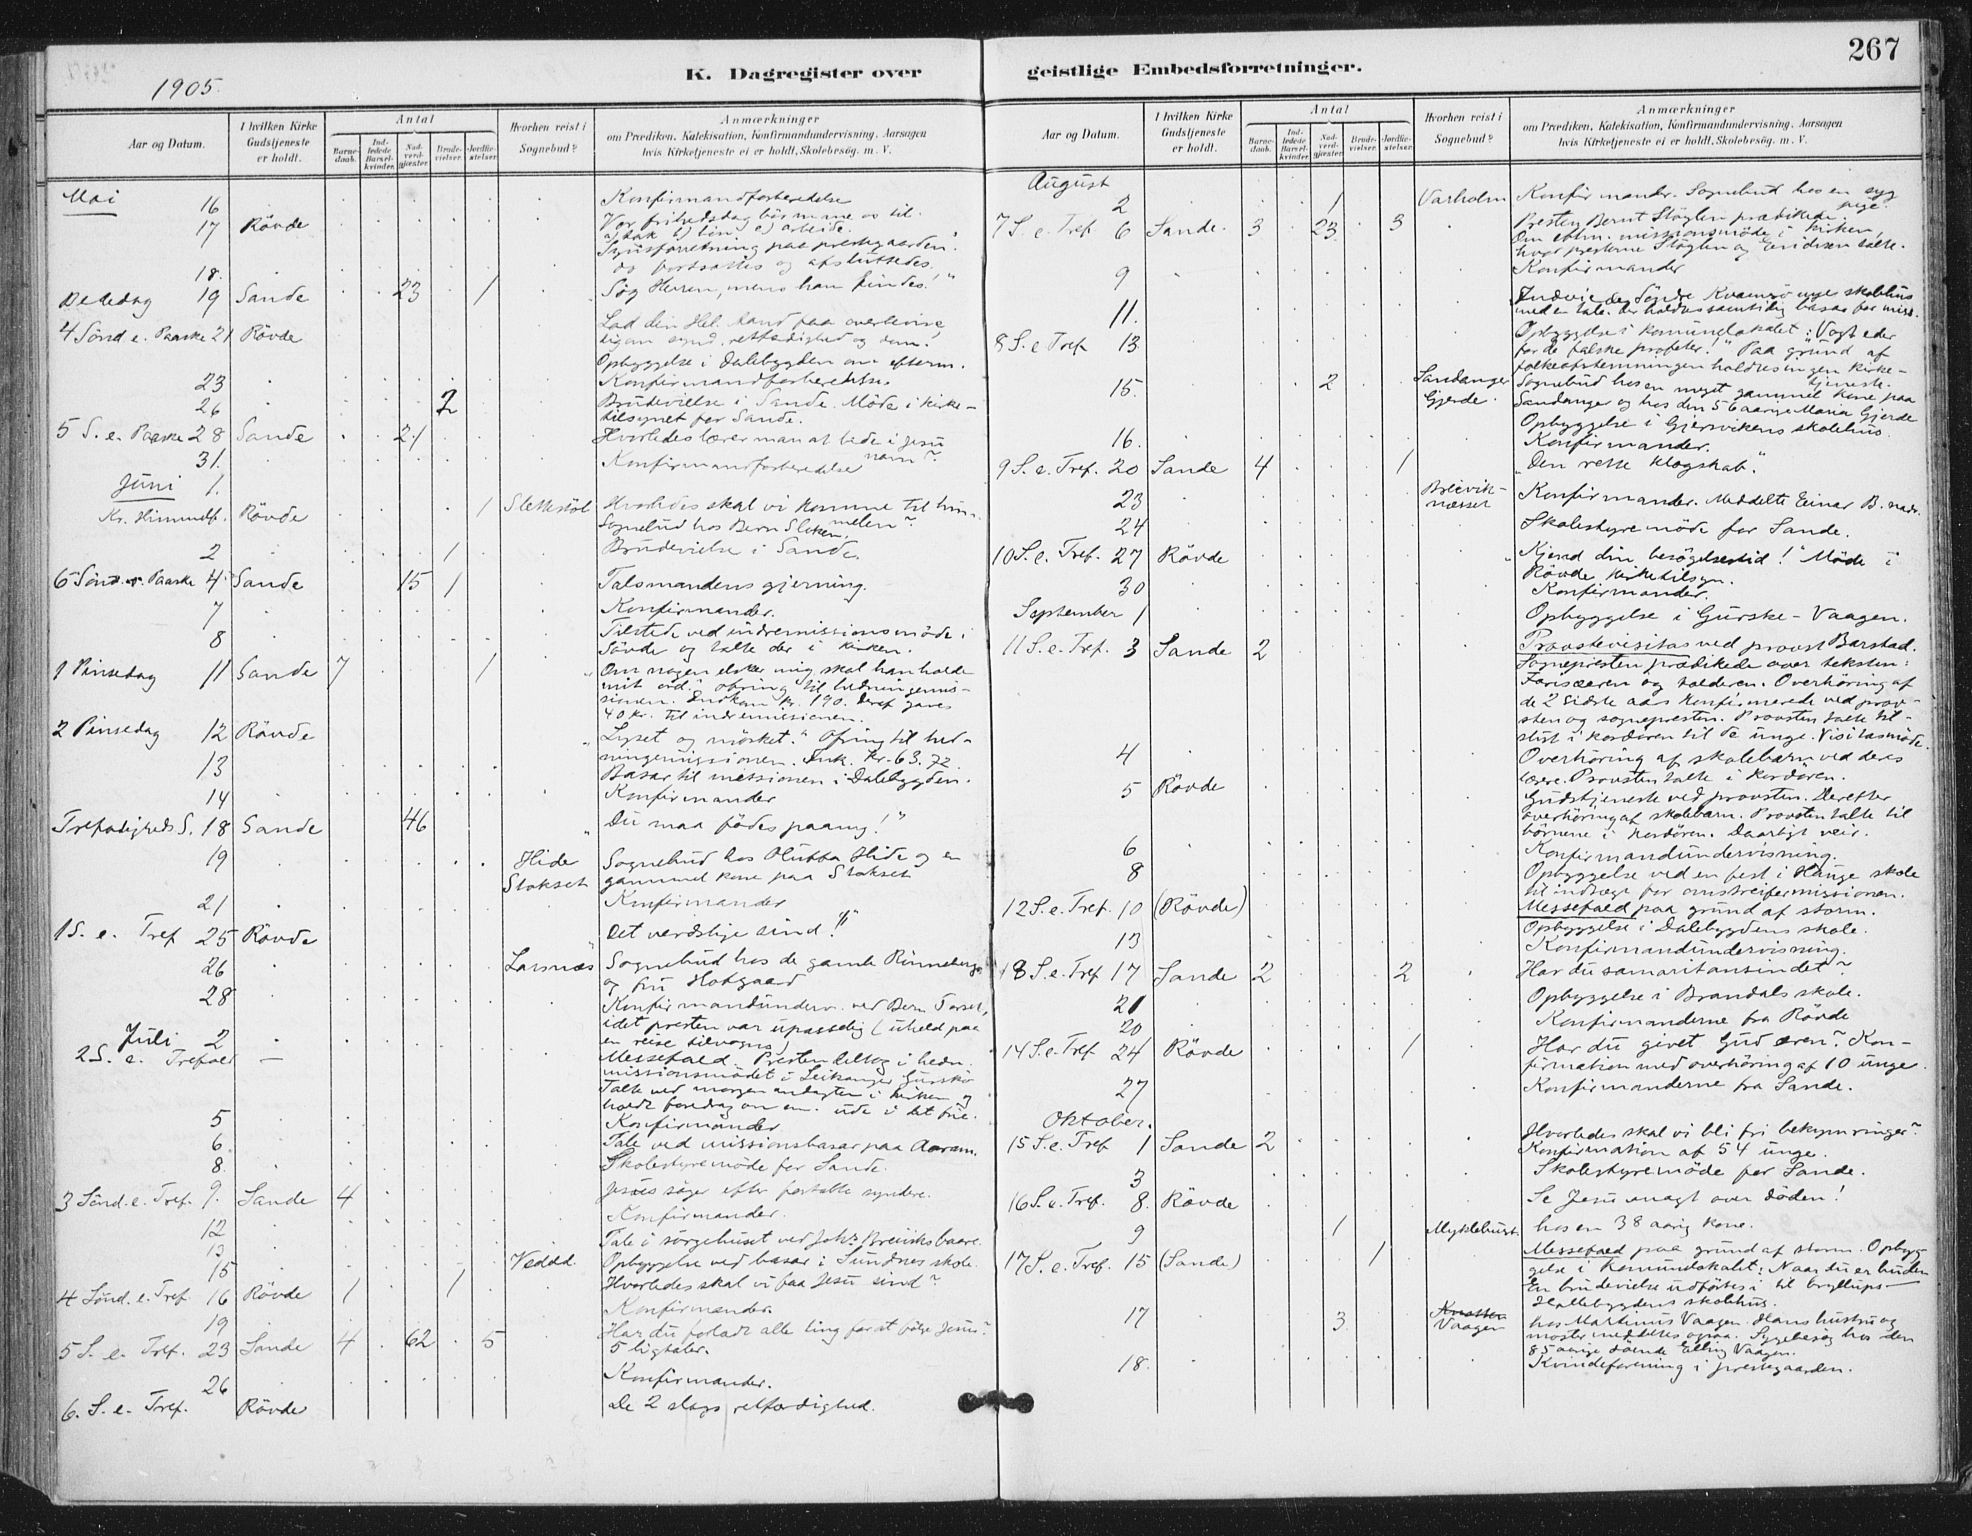 267
1905.
K. Dagregister over geistlige Embedsforretninger.
Aar og Datum.
I hvilken Kirke Gudstjeneste er holdt.
Antal
Barne-daab.
Ind-ledede Barsel-kvinder.
Nad-verd-gjæster.
Brude-vielser.
Jordfæ-stelser.
Hvorhen reist i Sognebud?
Anmærkninger
om Prædiken, Katekisation, Konfirmandundervisning, Aarsagen
hvis Kirketjeneste ei er holdt, Skolebesøg. m. V.
Mai
16 Konfirmandforberedelse
17 Rövde Vor frihedsdag bör mane os til
a) tak b) bön c) arbeide.
Synsforretning paa prestegaarden
18. og fortsattes og afsluttedes.
Bededag 19 Sande 23 1 "Søg Herren, mens han findes."
4 Sönd e. Paaske 21 Rövde Lad den Hel. Aand faa overbevise
synd, retfærdighed og dom.
Opbyggelse i Dalebygden om efterm.
23 Konfirmandforberedelse.
26 2 Brudevielse i Sande. Möde i kirke-
tilsynet for Sande.
5 S. e. Paaske 28 Sande 21 Hvorledes lærer man at bede i Jesu
navn?
31. Konfirmandforberedelse
Juni 1.
Kr. Himmelf. Rövde 1 Slettestöl Hvorledes skal vi komme til him-
melen?
Sognebud hos Bern Sloken.
2 1 Brudevielse i Sande.
6 Sönd. e. Paaske 4 Sande 15 1 Talsmandens gjerning.
7 Konfirmander.
8 Tilstede ved indremissionsmöde i
Sövde og talte der i kirken.
1 Pinsedag 11 Sande 7 1 "Om nogen elsker mig, skal han holde
mit ord." Ofring til hedningemis-
sionen. Indkom kr. 190. Deraf gaves
40 kr. til indremissionen.
2 Pinsedag 12 Rövde "Lyset og mörket." Ofring til hed-
ningemissionen. Ink. Kr. 63.72.
13 Basar til missionen i Dalebygden.
14 Konfirmander
Trefoldigheds S. 18 Sande 46 "Du maa födes paany!"
19 Hide Sognebud hos Olubba Hide og en
Stokset gammel kone paa Stokset
21 Konfirmander
1 S. e. Tref 25 Rövde Det verdslige sind!"
26 Larsnæs Sognebud hos de gamle Rinneberg
og fru Hofgaard
28 Konfirmandunderv. ved Bern Torset,
idet presten var upasselig (uheld paa
en reise tilvogns)
Juli 2
2 S. e. Trefold — Messefald. Presten deltog i hedn.
missionsmödet i Leikanger Gurskö
Talte ved morgenandagten i kirken og
holdt foredrag om em. ude i det frie.
5 Konfirmander
6. Tale ved missionsbasar paa Aaram.
8. Skolestyremöde for Sande.
3 Sönd. e. Tref. 9. Sande 4 Jesus söger efter fortabte syndere.
12 Konfirmander.
13 Tale i sörgehuset ved Johs Breiviks baare.
15 Veddd. Opbyggelse ved basar i Sundnes skole.
4 Sönd. e. Tref 16 Rövde 1 1 Hvorledes skal vi faa Jesu sind?
19 Konfirmander
5 S. e. Tref. 23 Sande 4 62 5 Har du forladt alle ting for at fölge Jesus?
5 ligtaler.
26 Konfirmander.
6. S. e. Tref. Rövde De 2 slags retfærdighed.
Aar og Datum.
I hvilken Kirke Gudstjeneste er holdt.
Antal
Barne-daab.
Ind-ledede Barsel-kvinder.
Nad-verd-gjæster.
Brude-vielser.
Jordfæ-stelser.
Hvorhen reist i Sognebud?
Anmærkninger
om Prædiken, Katekisation, Konfirmandundervisning, Aarsagen
hvis Kirketjeneste ei er holdt, Skolebesøg. m. V.
August
2 1 Varholm Konfirmander. Sognebud hos en syg
pige.
7 S. e. Tref 6 Sande. 3 23 3 Presten Bernt Stöylen prædikede.
Om eftm. missionsmöde i kirken,
hvor presterne Stöylen og Eeridsen talte.
9 Konfirmander
11. Indviede Söndre Kvamsö nye skolehus
med en tale. Der holdtes samtidig basar for miss.
8 S. e Tref 13 Opbyggelse i komunelokalet: "Vogt eder
for de falske profeter!" Paa grund af
folkeafstemningen holdtes ingen kirke-
tjeneste.
15. 2 Sandanger Sognebud hos en meget gammel kone paa
Gjerde. Sandanger og hos den 56 aarige Maria Gjerde
Opbyggelse i Gjersvikens skolehus.
16. Konfirmander.
9 S. e. Tref. 20 Sande 4 1 "Den rette klogskab."
23 Breivik-
næsset Konfirmander. Meddelte Einar B. nadv.
24 Skolestyremöde for Sande.
10 S. e. Tref. 27 Rövde "Kjend din besögelsestid!" Möde i
Rövde kirketilsyn.
30 Konfirmander.
September 1 Opbyggelse i Gurske-Vaagen.
11 S. e. Tref. 3 Sande 2 Provstevisitas ved provst Barstad.
Sognepresten prædikede over teksten:
Farisæeren og tolderen. Overhöring af
de 2 sidste aars konfirmerede ved prov-
sten og sognepresten. Provsten talte til-
slut i kordören til de unge. Visitasmöde.
4 Overhöring af skolebarn ved deres
lærere. Provsten talte i kordören.
5 Rövde Gudstjeneste ved provsten. Derefter
overhöring af skolebarn. Provsten talte til
börnene i kordören. Daarligt veir.
6 Konfirmandundervisning.
8 Opbyggelse ved en fest i Hauge skole
til indtægt for omstreifermissionen.
12 S. e. Tref. 10 (Rövde) Messefald paa grund af storm.
Opbyggelse i Dalebygdens skole.
13 Konfirmandundervisning.
13 S. e. Tref 17 Sande 2 2 Har du samaritansindet?
21 Opbyggelse i Brandals skole.
20 Konfirmanderne fra Rövde
14 S. e. Tref 24 Rövde 1 Har du givet Gud æren? Kon-
firmation med overhöring af 10 unge.
27 Konfirmanderne fra Sande.
Oktober.
15 S. e. Tref 1 Sande 2 Hvorledes skal vi bli fri bekymringer?
Konfirmation af 54 unge.
3 Skolestyremöde for Sande.
16 S. e. Tref. 8. Rövde Se Jesu magt over döden!
9 1 Myklebust. hos en 38 aarig kone.
17 S. e. Tref. 15 (Sande) 1 Messefald paa grund af storm. Opbyg-
gelse i komunelokalet; Naar du er buden
En brudevielse udförtes i til bryllups—
Hallebygdens skolehus.
17 3 Knotten
Vaagen hos Martinus Vaagen. Hans hustru og
moster meddeltes ogsaa. Sygebesög hos den
85 aarige döende Elling Vaagen.
18. Kvindeforening i prestegaarden.